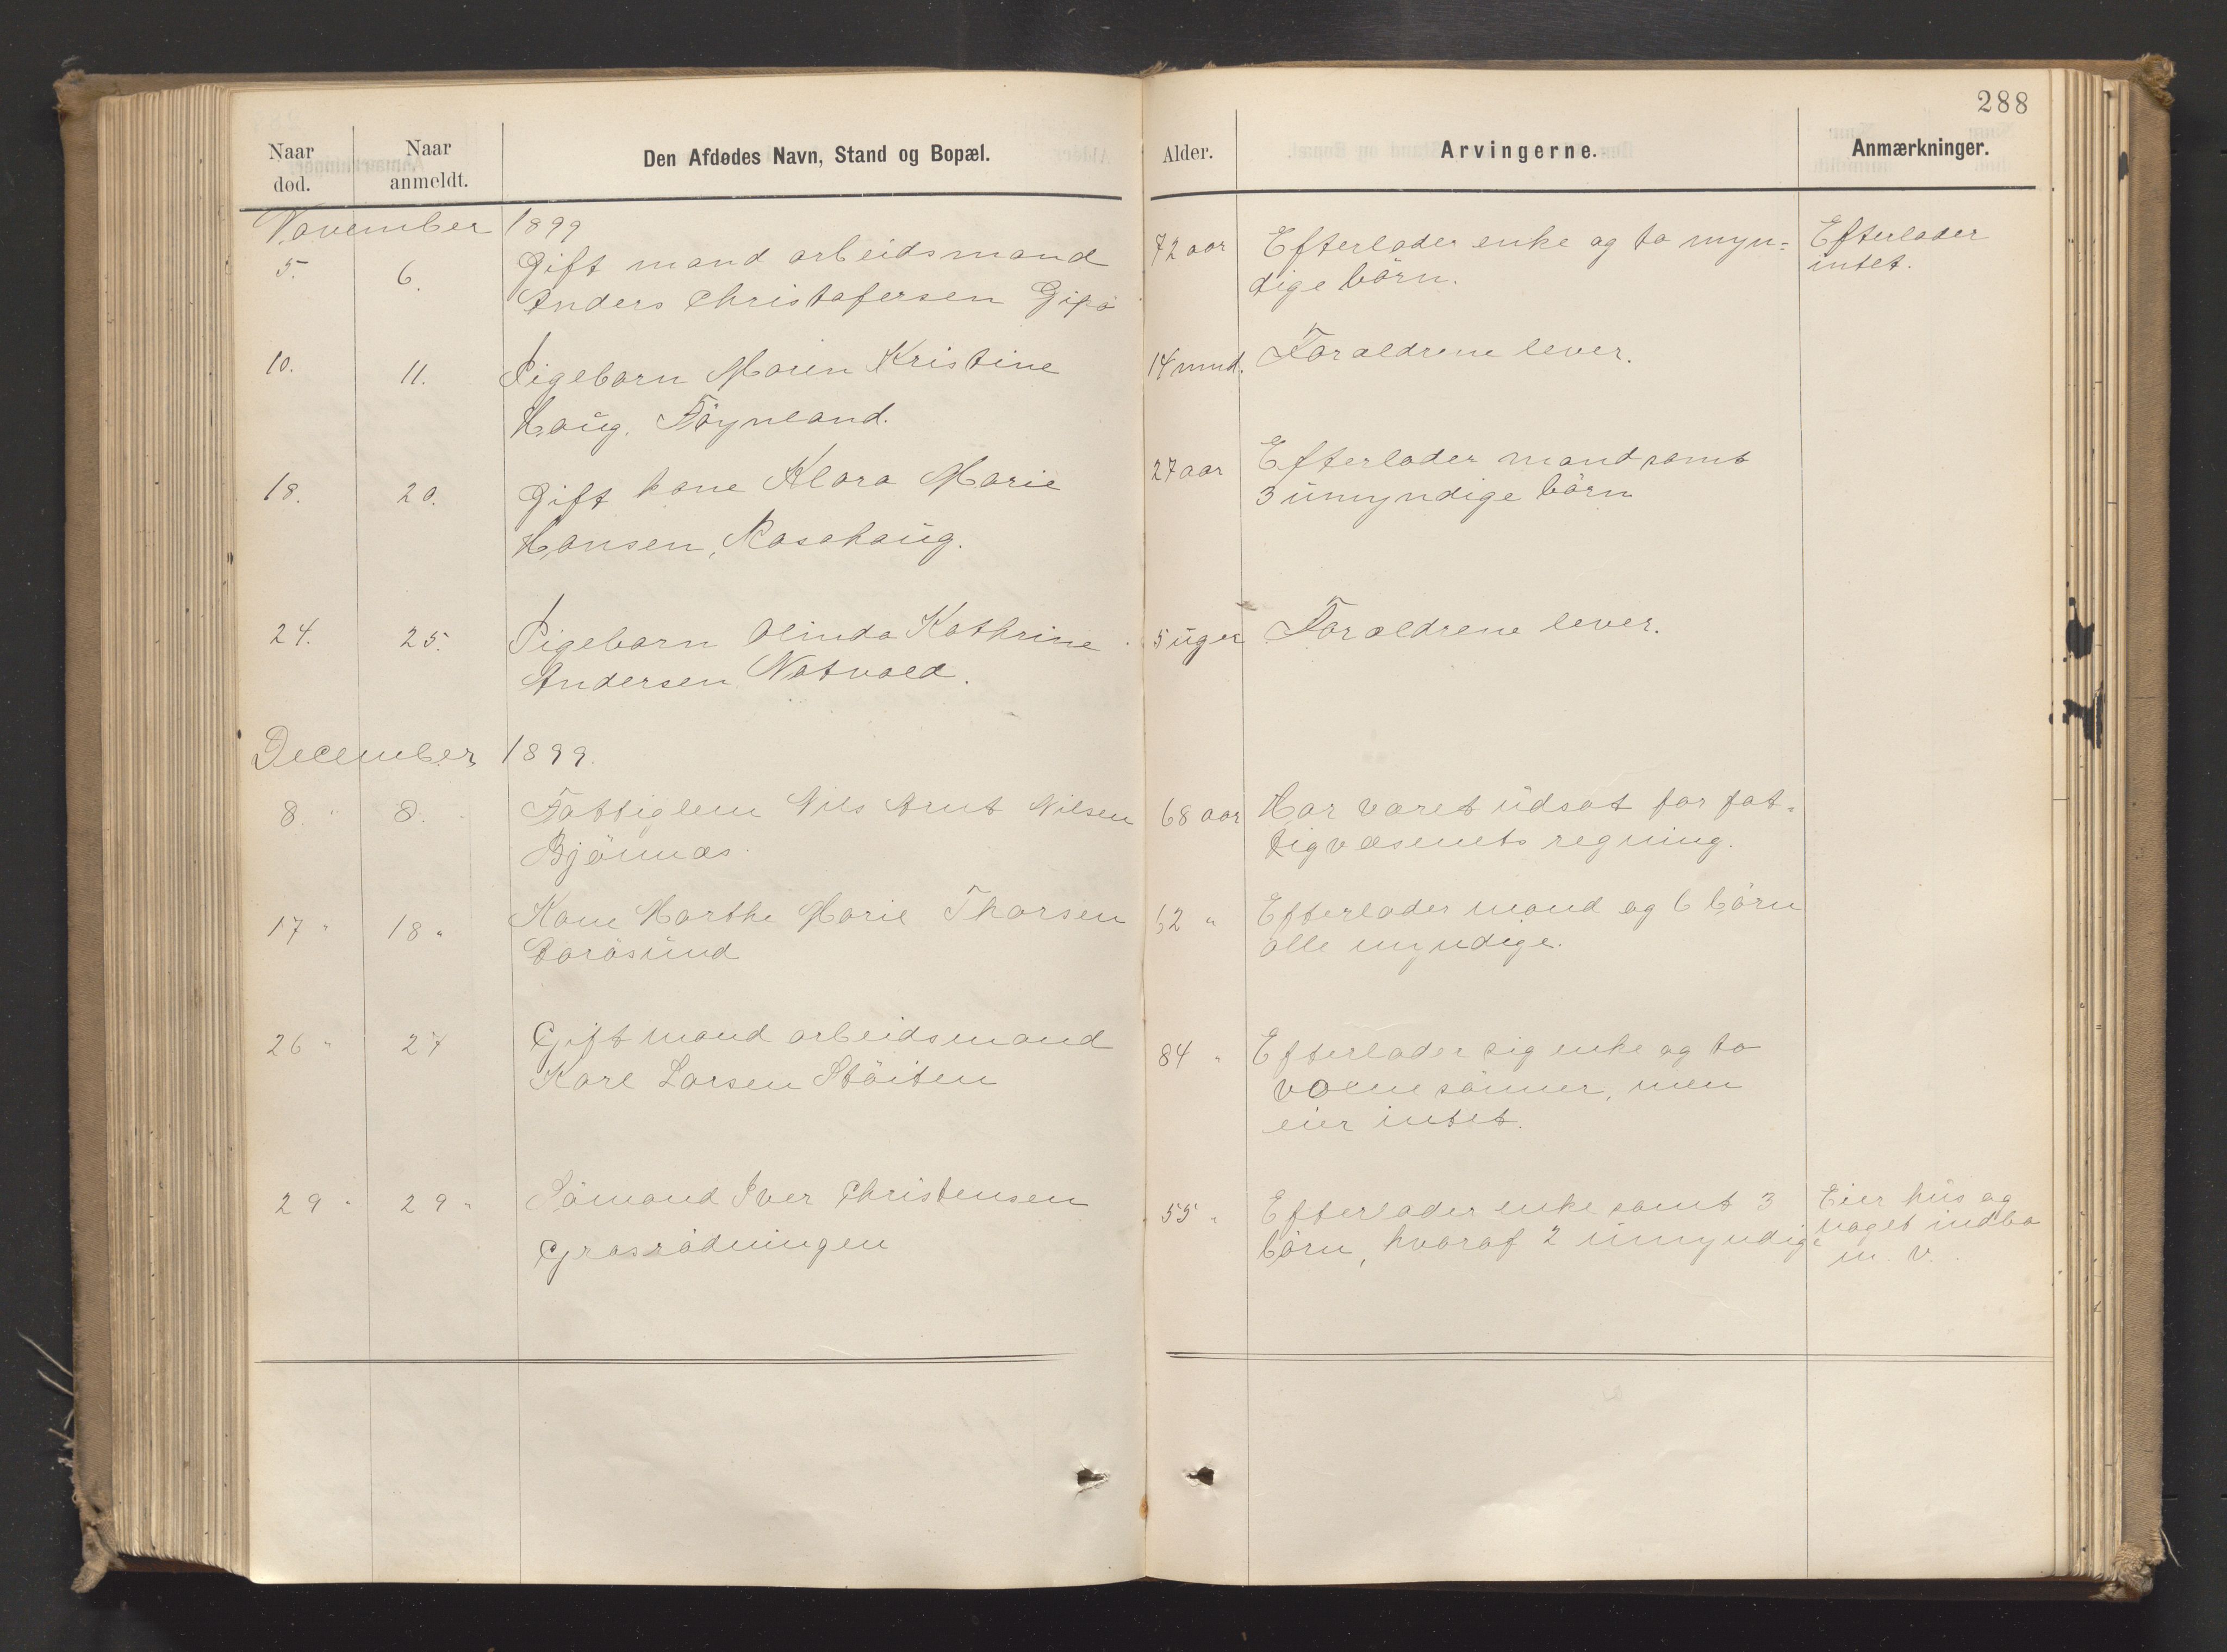 288
Naar død. Naar anmeldt. Den Afdødes Navn, Stand og Bopæl. Alder. Arvingerne. Anmærkninger.
November 1899
5. 6. Gift mand arbeidsmand 72 aar Efterlader enke og to myn= Efterlader
Anders Christofersen Gipö dige börn. intet.
10. 11. Pigebarn Maren Kristine 14 mnd. Forældrene lever.
Haug. Föynland.
18. 20. Gift kone Klara Marie 27 aar Efterlader mand samt
Hansen, Rosahaug. 3 umyndige börn
24. 25. Pigebarn Olinda Kathrine 5 uger Forældrene lever.
Andersen Natvald.
December 1899.
8. 8. Fattiglem Nils Arnt Nilsen 68 aar Har været udsat for fat=
Bjönnæs. tigvæsenets regning.
17 " 18 " Kone Marthe Marie Thorsen 62 " Efterlader mand og 6 börn
alle myndige.
26 " 27 Gift mand arbeidsmand 84 " Efterlader sig enke og to
Karl Larsen Stöiten voxne sönner, men
eier intet.
29 " 29 " Sömand Iver Christensen 55 " Efterlader enke samt 3 Eier hus og
Grasrödningen börn, hvoraf 2 umyndige noget indbo
m. v.